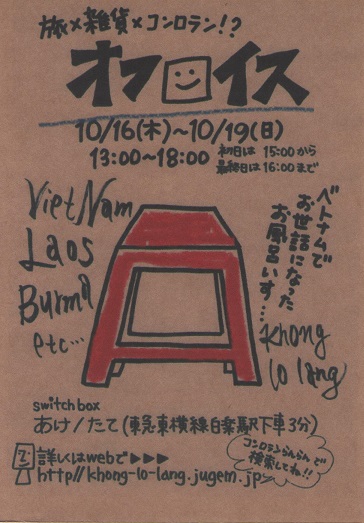 旅×雑貨×コンロラン!?
オフロイス
10/16(木)~10/19(日)
13:00~18:00
初日は 15:00から
最終日は16:00まで
VietNam
Laos
Burma
etc…
ベトナムで
お世話になった
お風呂いす…
Khong
lo lang
switch box
あけ/たて(東急東横線白楽駅下車3分)
詳しくはwebで▶▶▶
http//khong-lo-lang.jugem.jp
コンロランらんらんで
検索してね!!